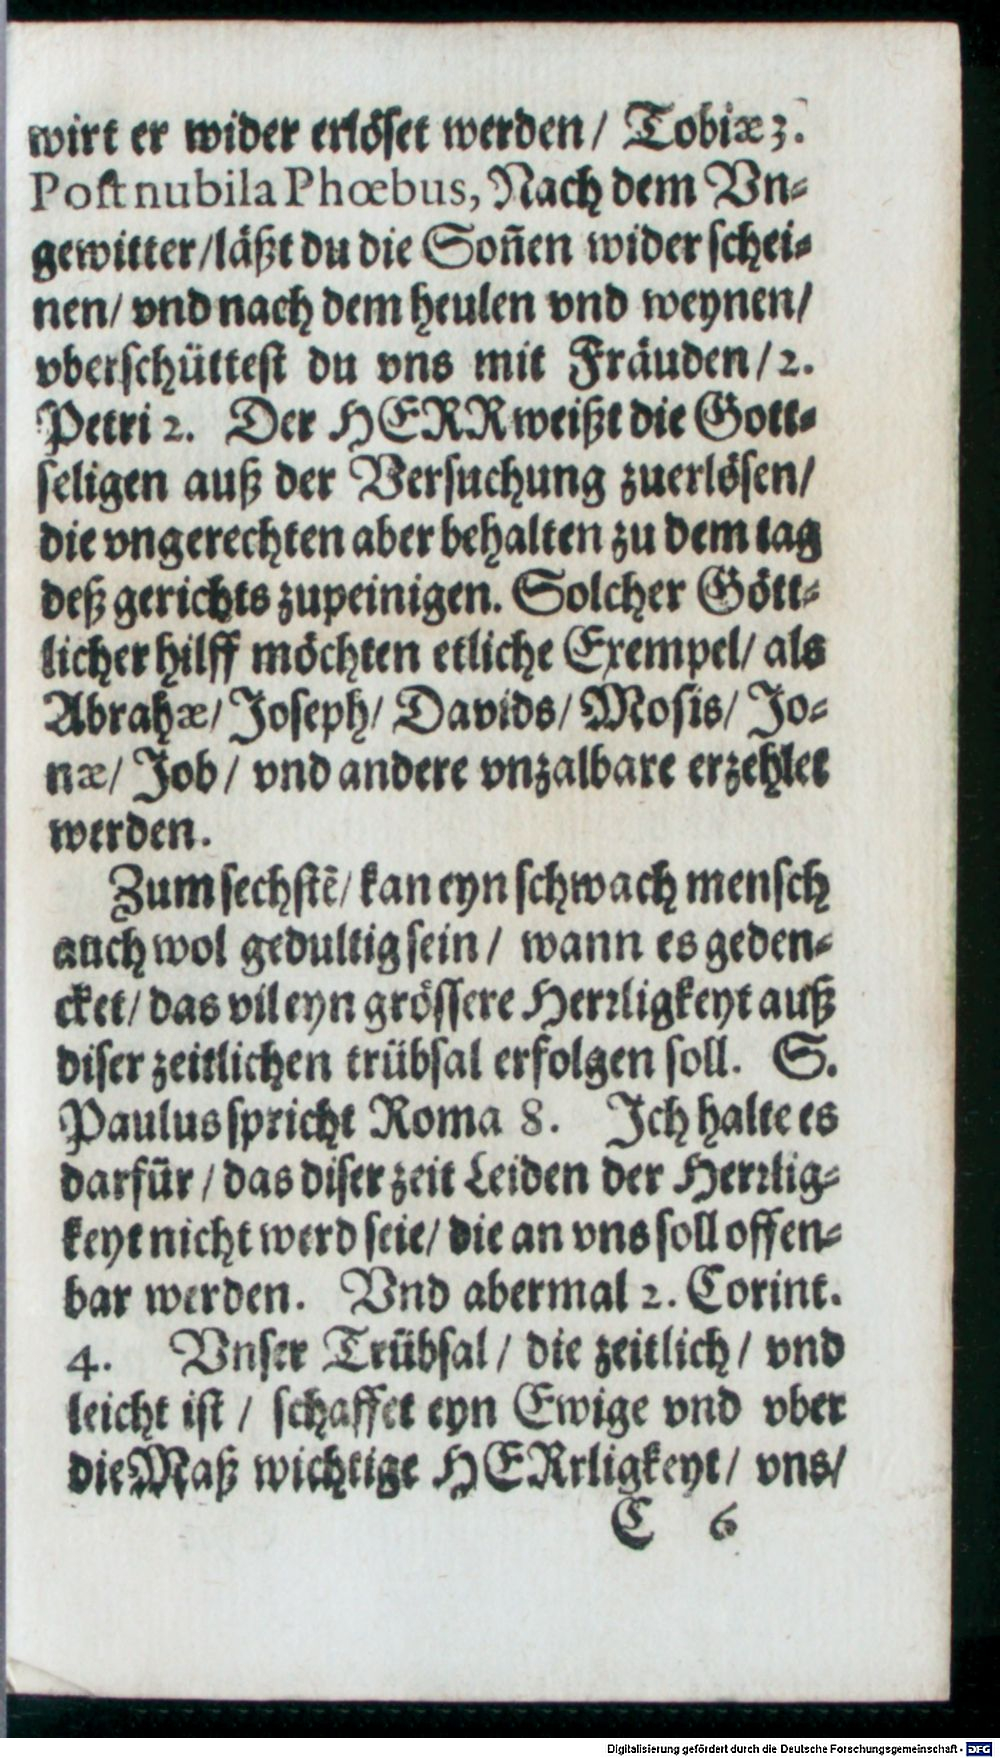 wirt er wider erlöset werden/ Tobiæ 3.
Post nubila Phœbus, Nach dem Vn-
gewitter/läßt du die Soñen wider schei-
nen/ vnd nach dem heulen vnd weynen/
vberschüttest du vns mit Fräuden/2.
Petri 2. Der HERR weißt die Gott-
seligen auß der Versuchung zuerlösen/
die vngerechten aber behalten zu dem tag
deß gerichts zupeinigen. Solcher Gött-
licher hilff möchten etliche Exempel/ als
Abrahæ/ Joseph/ Davids/ Mosis/ Jo-
næ/ Job/ vnd andere vnzalbare erzehlet
werden.
Zum sechstẽ/ kan eyn schwach mensch
auch wol gedultig sein/ wann es geden-
cket/ das vil eyn grössere Herrligkeyt auß
diser zeitlichen trübsal erfolgen soll. S.
Paulus spricht Roma 8. Ich halte es
darfür/das diser zeit Leiden der Herrlig-
keyt nicht werd seie/ die an vns soll offen-
bar werden. Vnd abermal 2. Corint.
4. Vnser Trübsal/ die zeitlich/ vnd
leicht ist/ schaffet eyn Ewige vnd vber
die Maß wichtige HERrligkeyt/ vns/
C 6
Digitalisierung gefördert durch die Deutsche Forschungsgemeinschaft - DFG